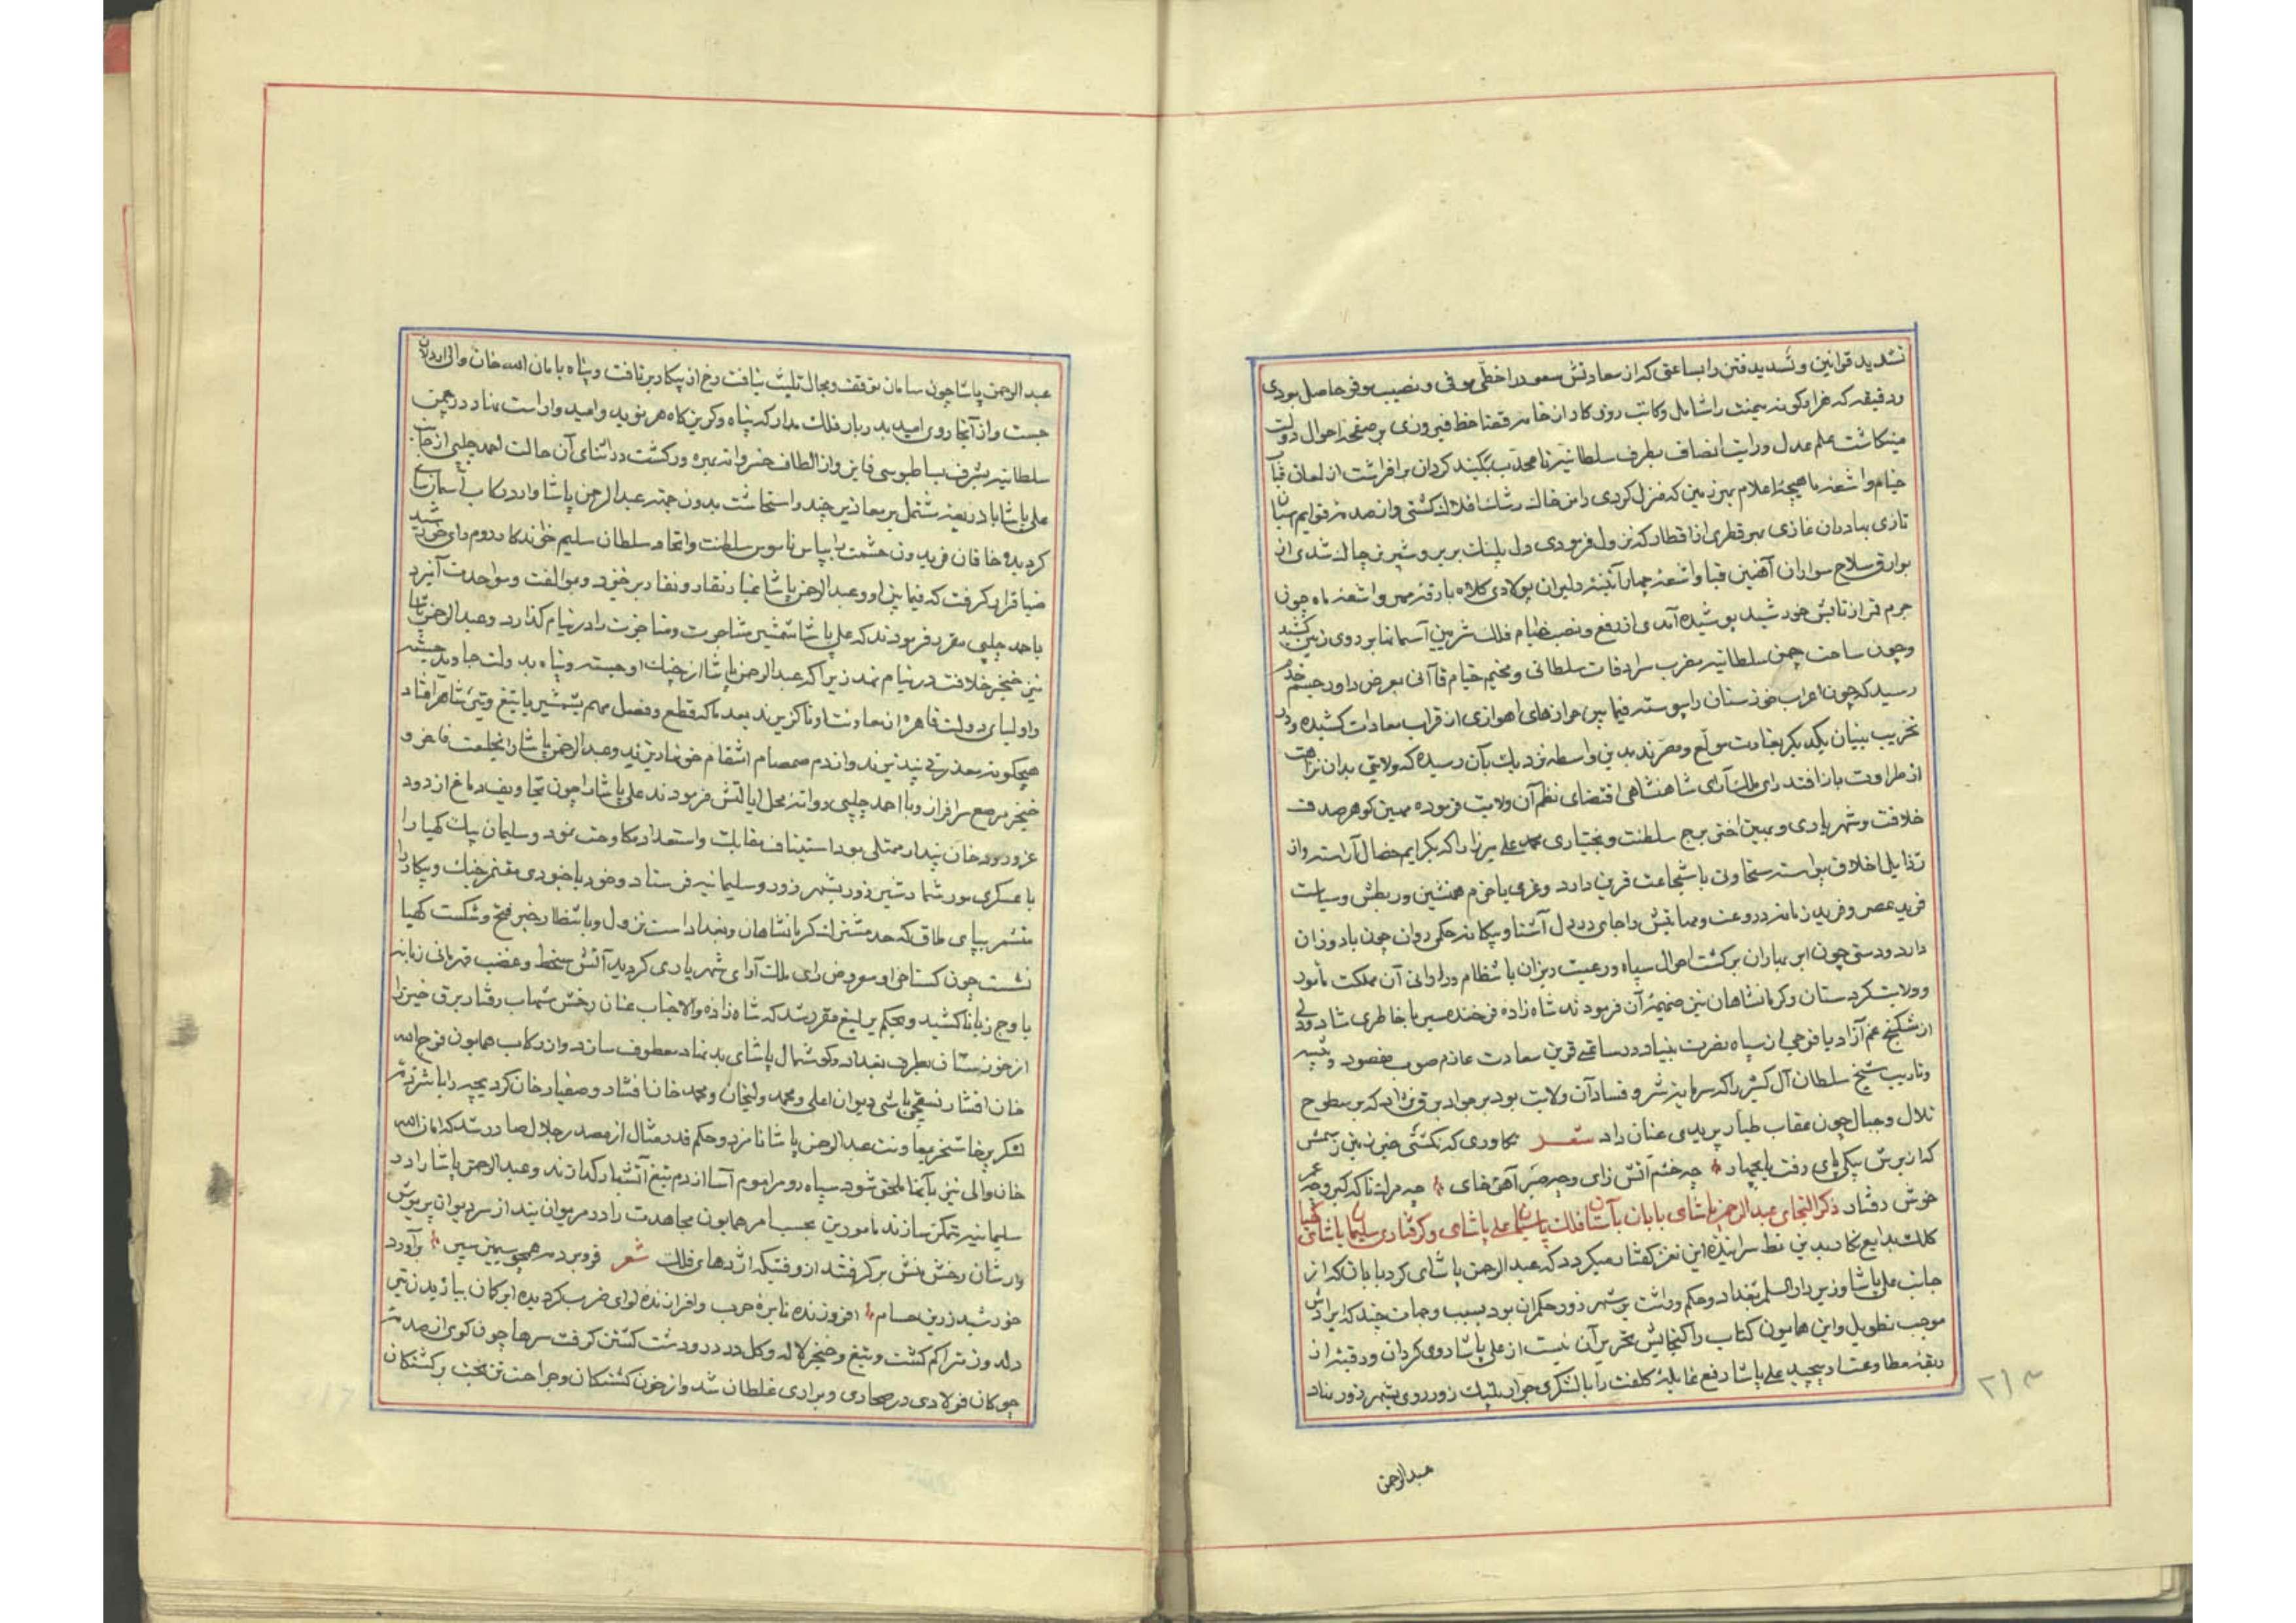 تشدید قوانین و تسدید فتن را بساعتی که از سعادتش سعود را حظی موفی و نصیب موفر حاصل بودی
و دقیقه که هزار کونه یمنت را شامل و کاتب روزکار از خامه قضا خط فیروزی بر صفحه احوال دولت
مینکاشت علم عدل و رایت انصاف بطرف سلطانیه تا محدب کردان برافراشت از لمعان قباب
خیام و اشعه ماهیچه اعلام بهر زمین که منزل کردی دامن خاک رشک افلاک کشتی و از صدمه قوایم اسبان
تازی بهادران غازی بهر قطری از اقطار که نزول فرمودی دل پلنک بربر و شیر نر چاک شدی از
بوارق سلاح سواران آهنین قبا و اشعه چهار آئینه دلیران پولادی کلاه بارقه مهر و اشعه ماه چون
جرم قمر از تابش خورشید پوشیده آمدی از رفع و نصب خیام فلک شرمین آسمانها بر روی زمین کشید
و چون ساحت چمن سلطانیه مضرب سرادقات سلطانی و مخیم خیام قاآنی بعرض داور جمشید خدم
رسید که چون اعراب خوزستان را پیوسته فیما بین اهوازی از قراب معادات کشیده و در
تخریب بنیان یکدیکر بغایت مولع و مصرند بدین واسطه نزدیک بآن رسیده که ولایتی بدان نزاهت
از طراوت باز افتد رای ملک آرای شاهنشاهی اقتضای نظم آن ولایت فرموده مهین کوهر صدف
خلافت و شهریاری و بهین اختر برج سلطنت و بختیاری محمد علی میرزا را که بکرایم خصال آراسته و از
رذایل اخلاق پیراسته سخاوتی با شجاعت قرین دارد و عزمی با حزم همنشین و در بطش و سیاست
فرید عصر و فرید زمانه در روعت و مهابتش را جای در دل آشنا و بیکانه حکمی روان چون باد وزان
دارد و دستی چون ابر بهاران بر کشت احوال سپاه و رعیت ریزان بانتظام و دارائی آن مملکت مامور
و ولایت کردستان و کرمانشاهان نیز ضمیمه آن فرمودند شاه زاده فرخنده سیر با خاطری شاد و دلی
از شکنج غم آزاد با فوجی از سپاه نصرت بنیاد در ساعتی قرین سعادت عازم صوب مقصود و تنبیه
و تادیب شیخ سلطان آل کثیر را که سرمایه شر و فساد آن ولایت بود بر جواد برق نژاد که بر سطوح
تلال و جبال چون عقاب طیار پریدی عنان داد شعر تکاوری که نکشتی خبر زمین ز سمش
کذر برش بیکی پای رفت یا بچهار چه خشم آتش زای و چه صبر آهن خای چه مرک ناکه کیر و چه عمر
خوش رفتار ذکر التجای عبدالرحمن پاشای بابان بآستان فلک پاسبان علی پاشای و کرفتاری سلیمان پاشای کهیا
کلک بدایع نکار بدین نمط سراینده این نغز کفتار میکردد که عبدالرحمن پاشای کرد بابان که از
جانب علی پاشا وزیر دارالسلم بغداد و حکم و داشت بر شهر زور حکمران بود بسبب وجهات چند که ایرادش
موجب تطویل و این همایون کتاب را کنجایش تحریر آن نیست از علی پاشا روی کردان و رقبه از
ربقه مطاوعت او پیچید علی پاشا رفع غایله کلفت را با لشکری جرار پلنک زور روی بشهر زور نهاد
عبدالرحمن
۲۱۳
عبدالرحمن پاشا چون سامان توقف و مجال تلبث نیافت رخ از پیکار برتافت و پناه بامان الله خان والی اردلان
جست و از آنجا روی امید بدربار فلک مدار که پناه و کریزکاه هر نوید و امید وار است نهاد در چمن
سلطانیه بشرف بساطبوسی فایز و از الطاف خسروانه بهره ور کشت در اثنای آن حالت احمد چلبی از جانب
علی پاشا با ذریعه مشتمل بر معاذیر چند و استحاشت بدون جهته عبدالرحمن پاشا وارد رکاب آسمان سای
کردیده خاقان فریدون حشمت را بپاس ناموس سلطنت و اتحاد سلطان سلیم خواندکار روم رای خورشید
ضیا قرار کرفت که فیما بین او و عبدالرحمن پاشا غبار نقاد و نقار برخیزد و موالفت و مواحدت آمیزد
باحمد چلبی مقرر فرمودند که علی پاشا شمشیر مشاجرت و مناجزت را در نیام کذارد و عبدالرحمن پاشا
نیز خنجر خلافت در نیام نهد زیرا که عبدالرحمن پاشا از چنک او جسته و پناه بدولت جاوید جسته
و اولیای دولت قاهره از معاونت او ناکزیرند بعد ما که قطع و فصل مهم بشمشیر یا تیغ افتاد
هیچکونه معذرتی نپذیرند و از دم صمصام انتقام خون نادیزند و عبدالرحمن پاشا را بخلعت فاخر و
خنجر مرصع سرافراز و با احمد چلبی روانه محل ایالتش فرمودند علی پاشا را چون تجاویف دماغ از دود
غرور و دخان پندار ممتلی بود استیناف مقابلت و استعداد مکاوحت نمود و سلیمان بیک کهیا را
با عسکری مور شمار دشمن زور بشهر زور و سلیمانیه فرستاد و خود با جنودی مقتحم جنک و پیکار را
متشمر بپای طاق که حد مشترک کرمانشاهان و بغداد است نزول و بانتظار خبر فتح و شکست کهیا
نشست چون کستاخی او معروض رای ملک آرای شهریاری کردید آتش سخط و غضب قهرمانی زبانه
باوج زبانا کشید و بحکم یرلیغ مقرر شد که شاه زاده والاجناب عنان رخش شهاب رفتار برق خیز را
از خوزستان بطرف بغداد و کوشمال پاشای بدنهاد معطوف سازد و از رکاب همایون فرج الله
خان افشار نسقچی باشی دیوان اعلی و محمد ولیخان و محمد خان افشار و صفیار خان کرد بچه را با شرذمه
لشکر پرخاشخر بمعاونت عبدالرحمن پاشا نامزد و حکم قدر مثال از مصدر جلال صادر شد که امان الله
خان والی نیز بآنها ملحق شود سپاه روم را موم آسا از دم تیغ آتشبار کدازند و عبدالرحمن پاشا را در
سلیمانیه متمکن سازند مامورین بحسب امر همایون مجاهدت را در مریوان بتند از سر دیوان پریوش
وارشان رخش منش بر کرفتند از وقتیکه اژدهای فلک شعر فرو برد مه همچو سیمین سپر برآورد
خورشید زرین حسام افروزنده نایره حرب و افرازنده لوای ضرب کردیده ابر کمان بباریدن تیر
و لد و زمتراکم کشت و تیغ و خنجر لاله و کل در در و دشت کشتن کرفت سرها چون کوی از صدمه
چوکان فولادی در صحاری و براری غلطان شد و از خون کشتکان و جراحت تن بخت برکشتکان